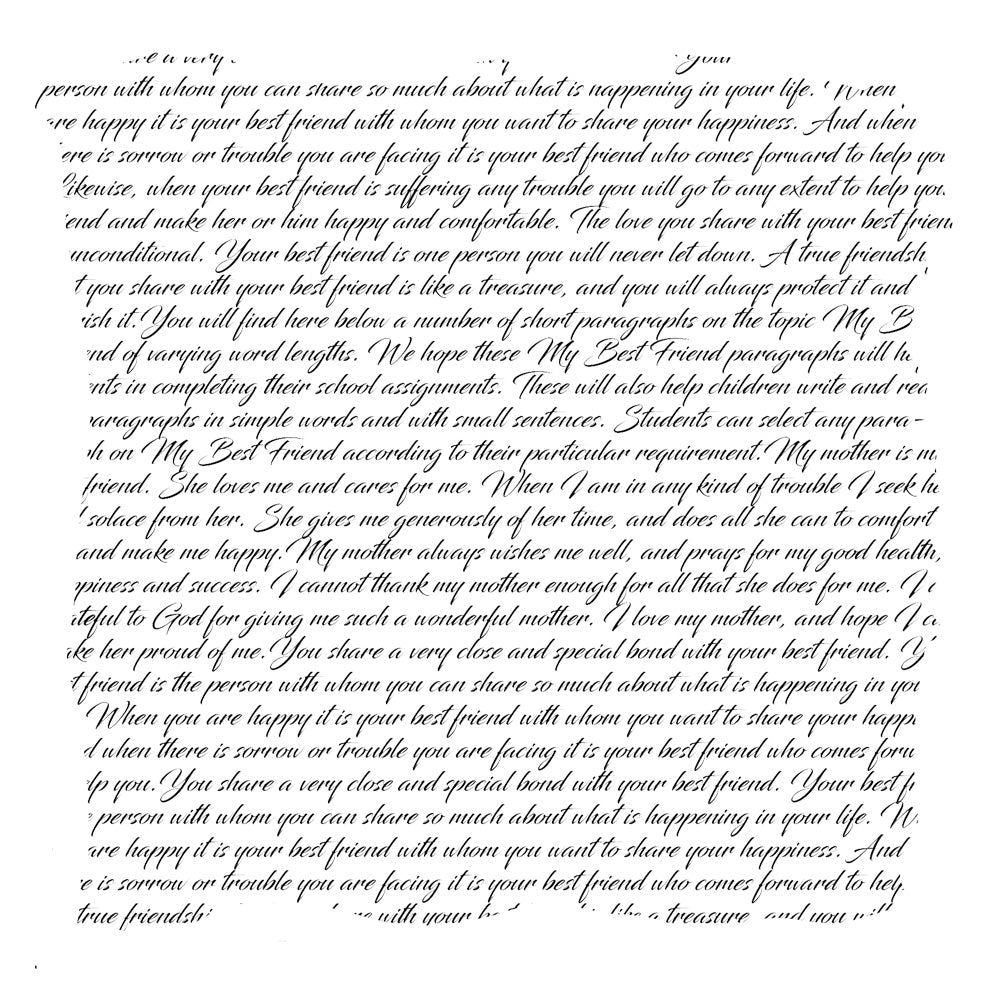 a very
person with whom you can share so much about what is happening in your life. When
are happy it is your best friend with whom you want to share your happiness. And when
ere is sorrow or trouble you are facing it is your best friend who comes forward to help you
Likewise, when your best friend is suffering any trouble you will go to any extent to help you
end and make her or him happy and comfortable. The love you share with your best frien
unconditional. Your best friend is one person you will never let down. A true friendsh
t you share with your best friend is like a treasure, and you will always protect it and
rish it. You will find here below a number of short paragraphs on the topic My B
end of varying word lengths. We hope these My Best Friend paragraphs will he
nts in completing their school assignments. These will also help children write and rea
paragraphs in simple words and with small sentences. Students can select any para-
h on My Best Friend according to their particular requirement. My mother is m
friend. She loves me and cares for me. When I am in any kind of trouble I seek he
solace from her. She gives me generously of her time, and does all she can to comfort
and make me happy. My mother always wishes me well, and prays for my good health,
ppiness and success. I cannot thank my mother enough for all that she does for me. I
ateful to God for giving me such a wonderful mother. I love my mother, and hope I ca
ake her proud of me. You share a very close and special bond with your best friend. Y
t friend is the person with whom you can share so much about what is happening in you
When you are happy it is your best friend with whom you want to share your happi
d when there is sorrow or trouble you are facing it is your best friend who comes forw
lp you. You share a very close and special bond with your best friend. Your best fr
person with whom you can share so much about what is happening in your life. W
are happy it is your best friend with whom you want to share your happiness. And
e is sorrow or trouble you are facing it is your best friend who comes forward to help
true friendshi with your like a treasure and you will